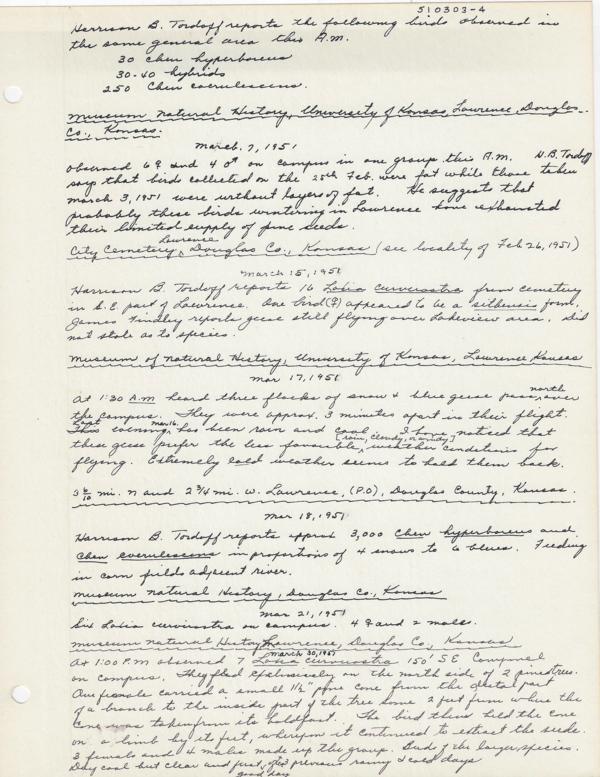 510303-4
Harrison B. Tordoff reports the following birds observed in
the same general area this A.M.
30 Chen hyperboreus
30-40 hybrids
250 Chen coerulescens.
Museum Natural History, University of Kansas, Lawrence, Douglas
Co., Kansas.
March 7, 1951
Observed 6♀ and 4♂ on campus in one group this A.M. H.B. Tordoff
says that birds collected on the 25th Feb. were fat while those taken
March 3, 1951 were without layers of fat. He suggests that
probably these birds wintering in Lawrence have exhausted
their limited supply of pine seeds.
City Cemetery, Lawrence, Douglas Co., Kansas (see locality of Feb 26, 1951)
March 15, 1951
Harrison B. Tordoff reports 16 Loxia curvirostra from cemetery
in S.E part of Lawrence. One bird (♀) appeared to be a sitkensis form.
James Findley reports geese still flying over Lakeview area. Did
not state as to species.
Museum of Natural History, University of Kansas, Lawrence, Kansas
Mar 17, 1951
At 1:30 A.M heard three flocks of snow & blue geese pass north over
the campus. They were approx. 3 minutes apart in their flight.
Last evening, Mar 16, has been rain and cool. I have noticed that
these geese prefer the less favorable [rain, cloudy, or windy] weather conditions for
flying. Extremely cold weather seems to hold them back.
3 6/10 mi. N and 2 3/4 mi. W. Lawrence, (P.O), Douglas County, Kansas.
Mar 18, 1951
Harrison B. Tordoff reports approx 3,000 Chen hyperboreus and
Chen coerulescens in proportions of 4 snows to 6 blues. Feeding
in corn fields adjacent river.
Museum Natural History, Douglas Co., Kansas
Mar 21, 1951
Six Loxia curvirostra on campus. 4 ♀ and 2 males.
Museum Natural History, Lawrence, Douglas Co., Kansas
March 30, 1951
At 1:00 P.M observed 7 Loxia curvirostra 150' S E
on campus. They fed on the north side of 2 pine trees.
One female carried a small 1 1/2" pine cone from the distal part
of a branch to the inside part of the tree some 2 feet from where the
cone was taken from its holdfast. The bird then held the cone
on a limb by its feet, whereupon it continued to extract the seeds.
3 females and 4 males made up the group. of the larger species.
Day cool but clear and previous rainy & cold days
good day